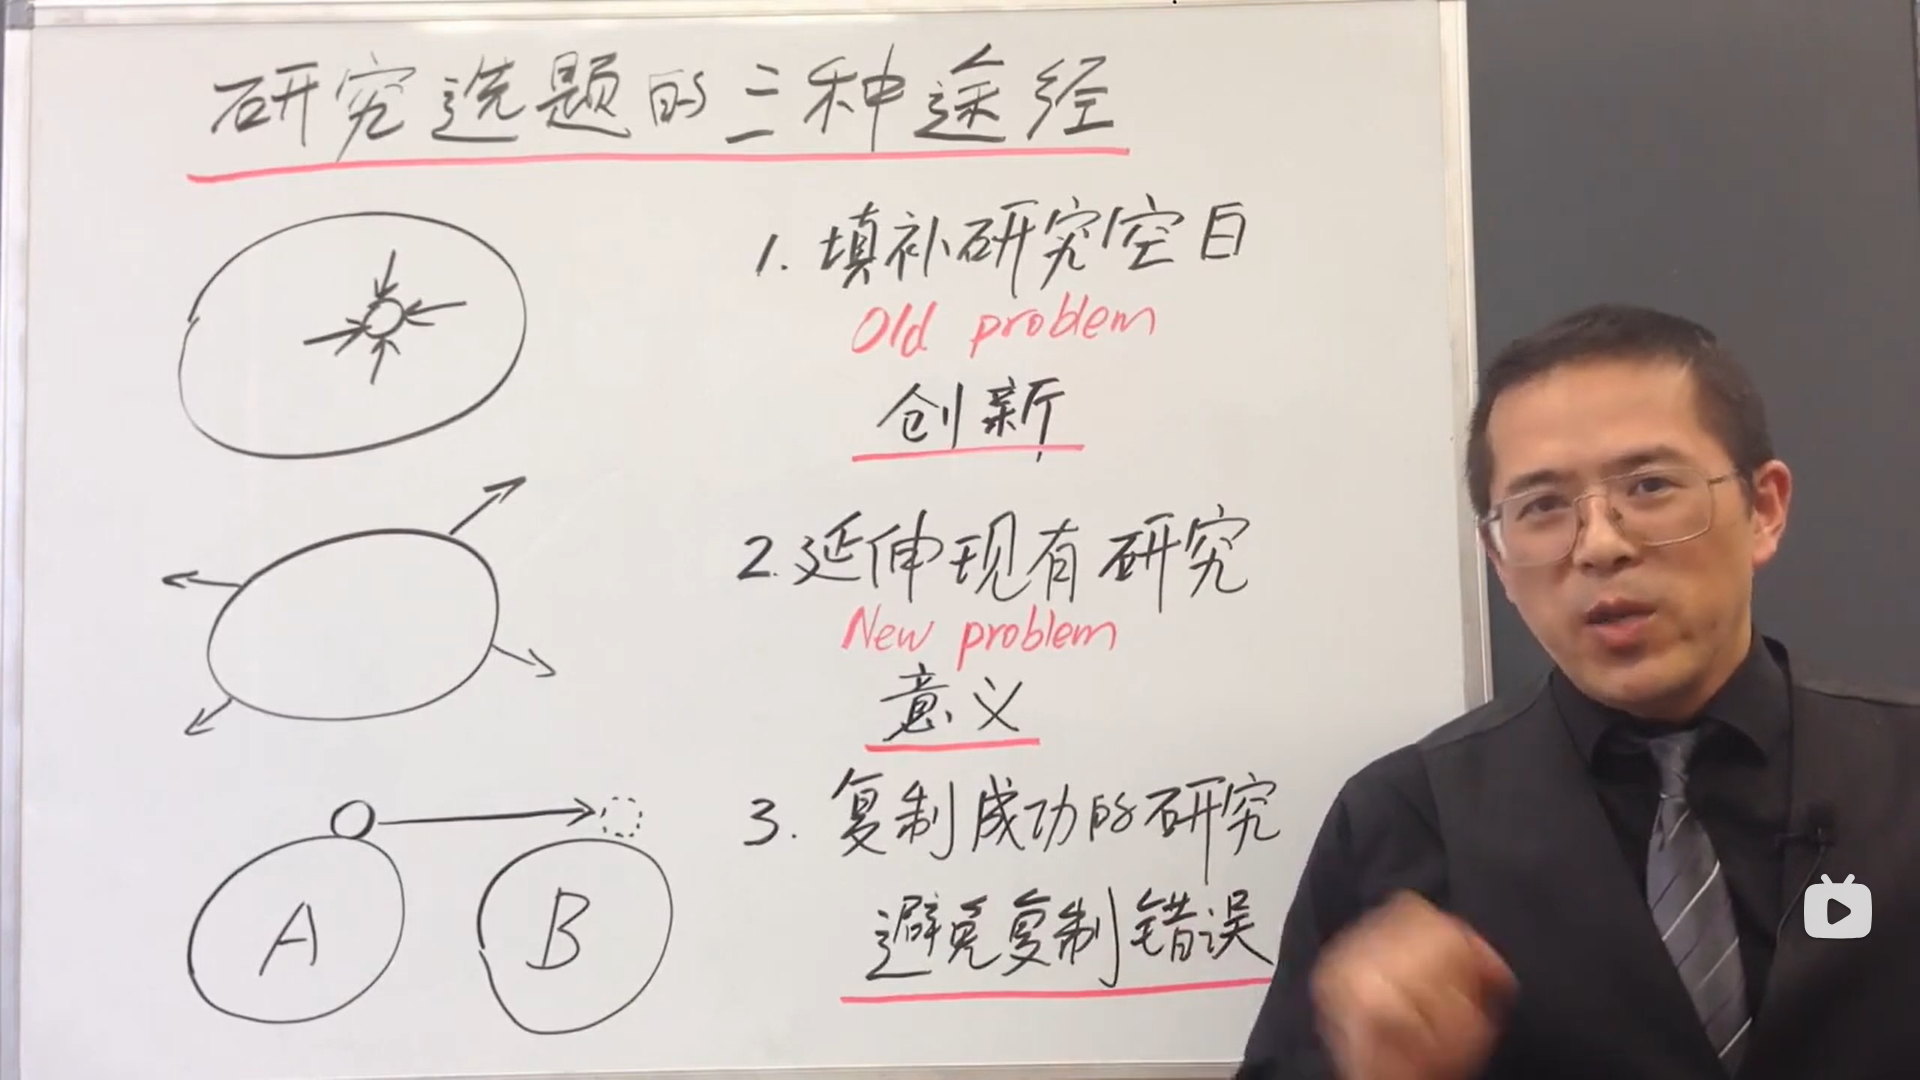 研究选题的三种途径
1. 填补研究空白
Old problem
创新
2. 延伸现有研究
New problem
意义
3. 复制成功的研究
避免复制错误
A
B